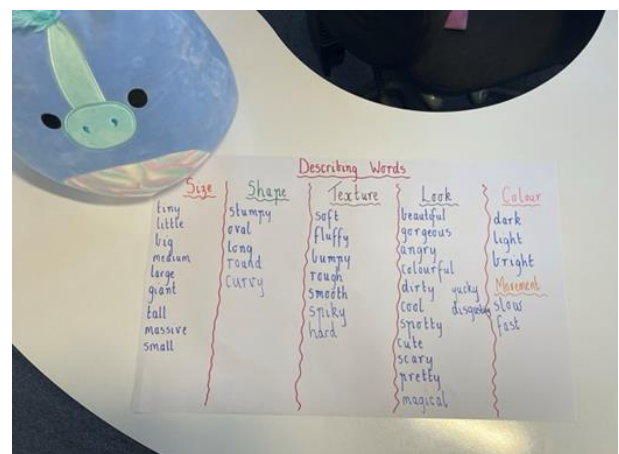 Describing Words
Size
tiny
little
big
medium
large
giant
tall
massive
small
Shape
stumpy
oval
long
round
curvy
Texture
soft
fluffy
bumpy
rough
smooth
spiky
hard
Look
beautiful
gorgeous
angry
colourful
dirty yucky
cool disgusting
spotty
cute
scary
pretty
magical
Colour
dark
light
bright
Movement
slow
fast